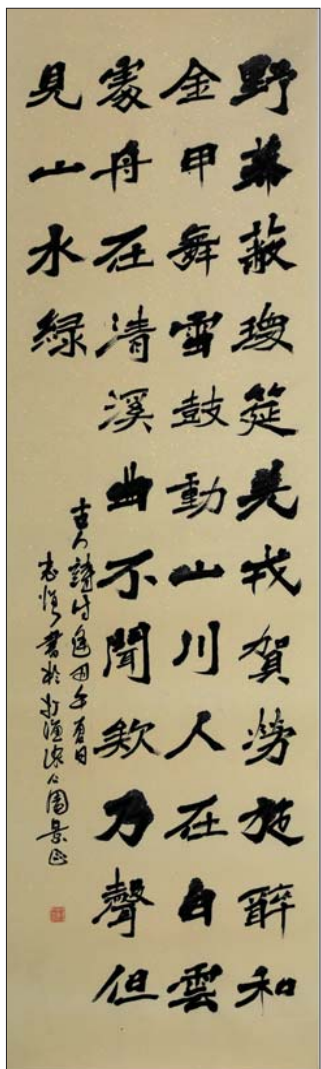 野幕蔽瓊筵羌戎賀勞旋醉和
金甲舞雷鼓動山川人在白雲
處舟在清溪曲不聞欸乃聲但
見山水綠
古人詩 夏日
書於